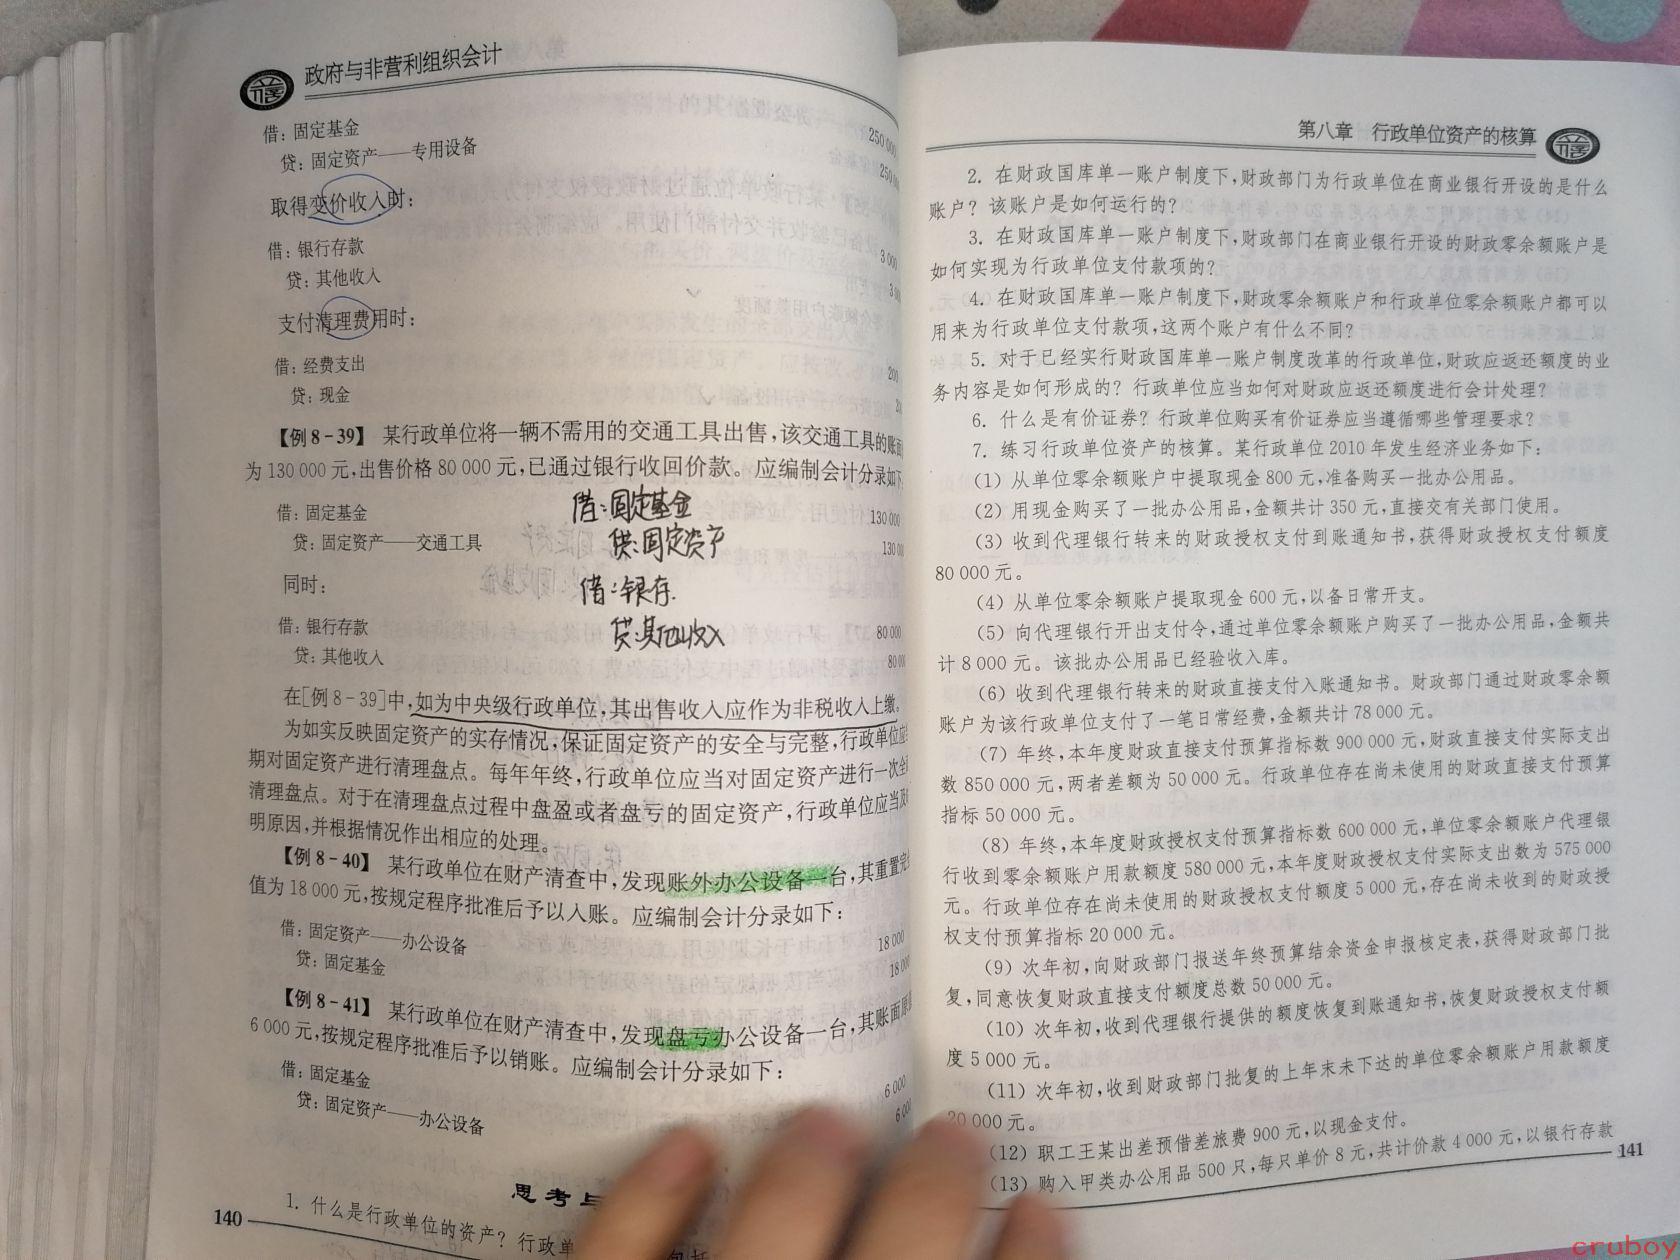 政府与非营利组织会计
借：固定基金 250 000
贷：固定资产——专用设备 250
取得变价收入时：
借：银行存款 3 000
贷：其他收入 3
支付清理费用时：
借：经费支出 200
贷：现金
【例8-39】 某行政单位将一辆不需用的交通工具出售，该交通工具的账面
为130 000元，出售价格80 000元，已通过银行收回价款。应编制会计分录如下
借：固定基金 130 000
贷：固定资产——交通工具 130
同时：
借：银行存款 80 000
贷：其他收入 80
借：固定基金
贷：固定资产
借：银存.
贷：其他收入
在[例8-39]中，如为中央级行政单位，其出售收入应作为非税收入上缴。
为如实反映固定资产的实存情况，保证固定资产的安全与完整，行政单位应
期对固定资产进行清理盘点。每年年终，行政单位应当对固定资产进行一次全
清理盘点。对于在清理盘点过程中盘盈或者盘亏的固定资产，行政单位应当及
明原因，并根据情况作出相应的处理。
【例8-40】 某行政单位在财产清查中，发现账外办公设备一台，其重置完
值为18 000元，按规定程序批准后予以入账。应编制会计分录如下：
借：固定资产——办公设备 18 000
贷：固定基金 18
【例8-41】 某行政单位在财产清查中，发现盘亏办公设备一台，其账面原
6 000元，按规定程序批准后予以销账。应编制会计分录如下：
借：固定基金 6 000
贷：固定资产——办公设备 6
思考与
1. 什么是行政单位的资产？行政单
140
第八章 行政单位资产的核算
2. 在财政国库单一账户制度下，财政部门为行政单位在商业银行开设的是什么
账户？该账户是如何运行的？
3. 在财政国库单一账户制度下，财政部门在商业银行开设的财政零余额账户是
如何实现为行政单位支付款项的？
4. 在财政国库单一账户制度下，财政零余额账户和行政单位零余额账户都可以
用来为行政单位支付款项，这两个账户有什么不同？
5. 对于已经实行财政国库单一账户制度改革的行政单位，财政应返还额度的业
务内容是如何形成的？行政单位应当如何对财政应返还额度进行会计处理？
6. 什么是有价证券？行政单位购买有价证券应当遵循哪些管理要求？
7. 练习行政单位资产的核算。某行政单位2010年发生经济业务如下：
（1）从单位零余额账户中提取现金800元，准备购买一批办公用品。
（2）用现金购买了一批办公用品，金额共计350元，直接交有关部门使用。
（3）收到代理银行转来的财政授权支付到账通知书，获得财政授权支付额度
80 000元。
（4）从单位零余额账户提取现金600元，以备日常开支。
（5）向代理银行开出支付令，通过单位零余额账户购买了一批办公用品，金额共
计8 000元。该批办公用品已经验收入库。
（6）收到代理银行转来的财政直接支付入账通知书。财政部门通过财政零余额
账户为该行政单位支付了一笔日常经费，金额共计78 000元。
（7）年终，本年度财政直接支付预算指标数900 000元，财政直接支付实际支出
数850 000元，两者差额为50 000元。行政单位存在尚未使用的财政直接支付预算
指标50 000元。
（8）年终，本年度财政授权支付预算指标数600 000元，单位零余额账户代理银
行收到零余额账户用款额度580 000元，本年度财政授权支付实际支出数为575 000
元。行政单位存在尚未使用的财政授权支付额度5 000元，存在尚未收到的财政授
权支付预算指标20 000元。
（9）次年初，向财政部门报送年终预算结余资金申报核定表，获得财政部门批
复，同意恢复财政直接支付额度总数50 000元。
（10）次年初，收到代理银行提供的额度恢复到账通知书，恢复财政授权支付额
度5 000元。
（11）次年初，收到财政部门批复的上年末未下达的单位零余额账户用款额度
20 000元。
（12）职工王某出差预借差旅费900元，以现金支付。
（13）购入甲类办公用品500只，每只单价8元，共计价款4 000元，以银行存款
141
cruboy